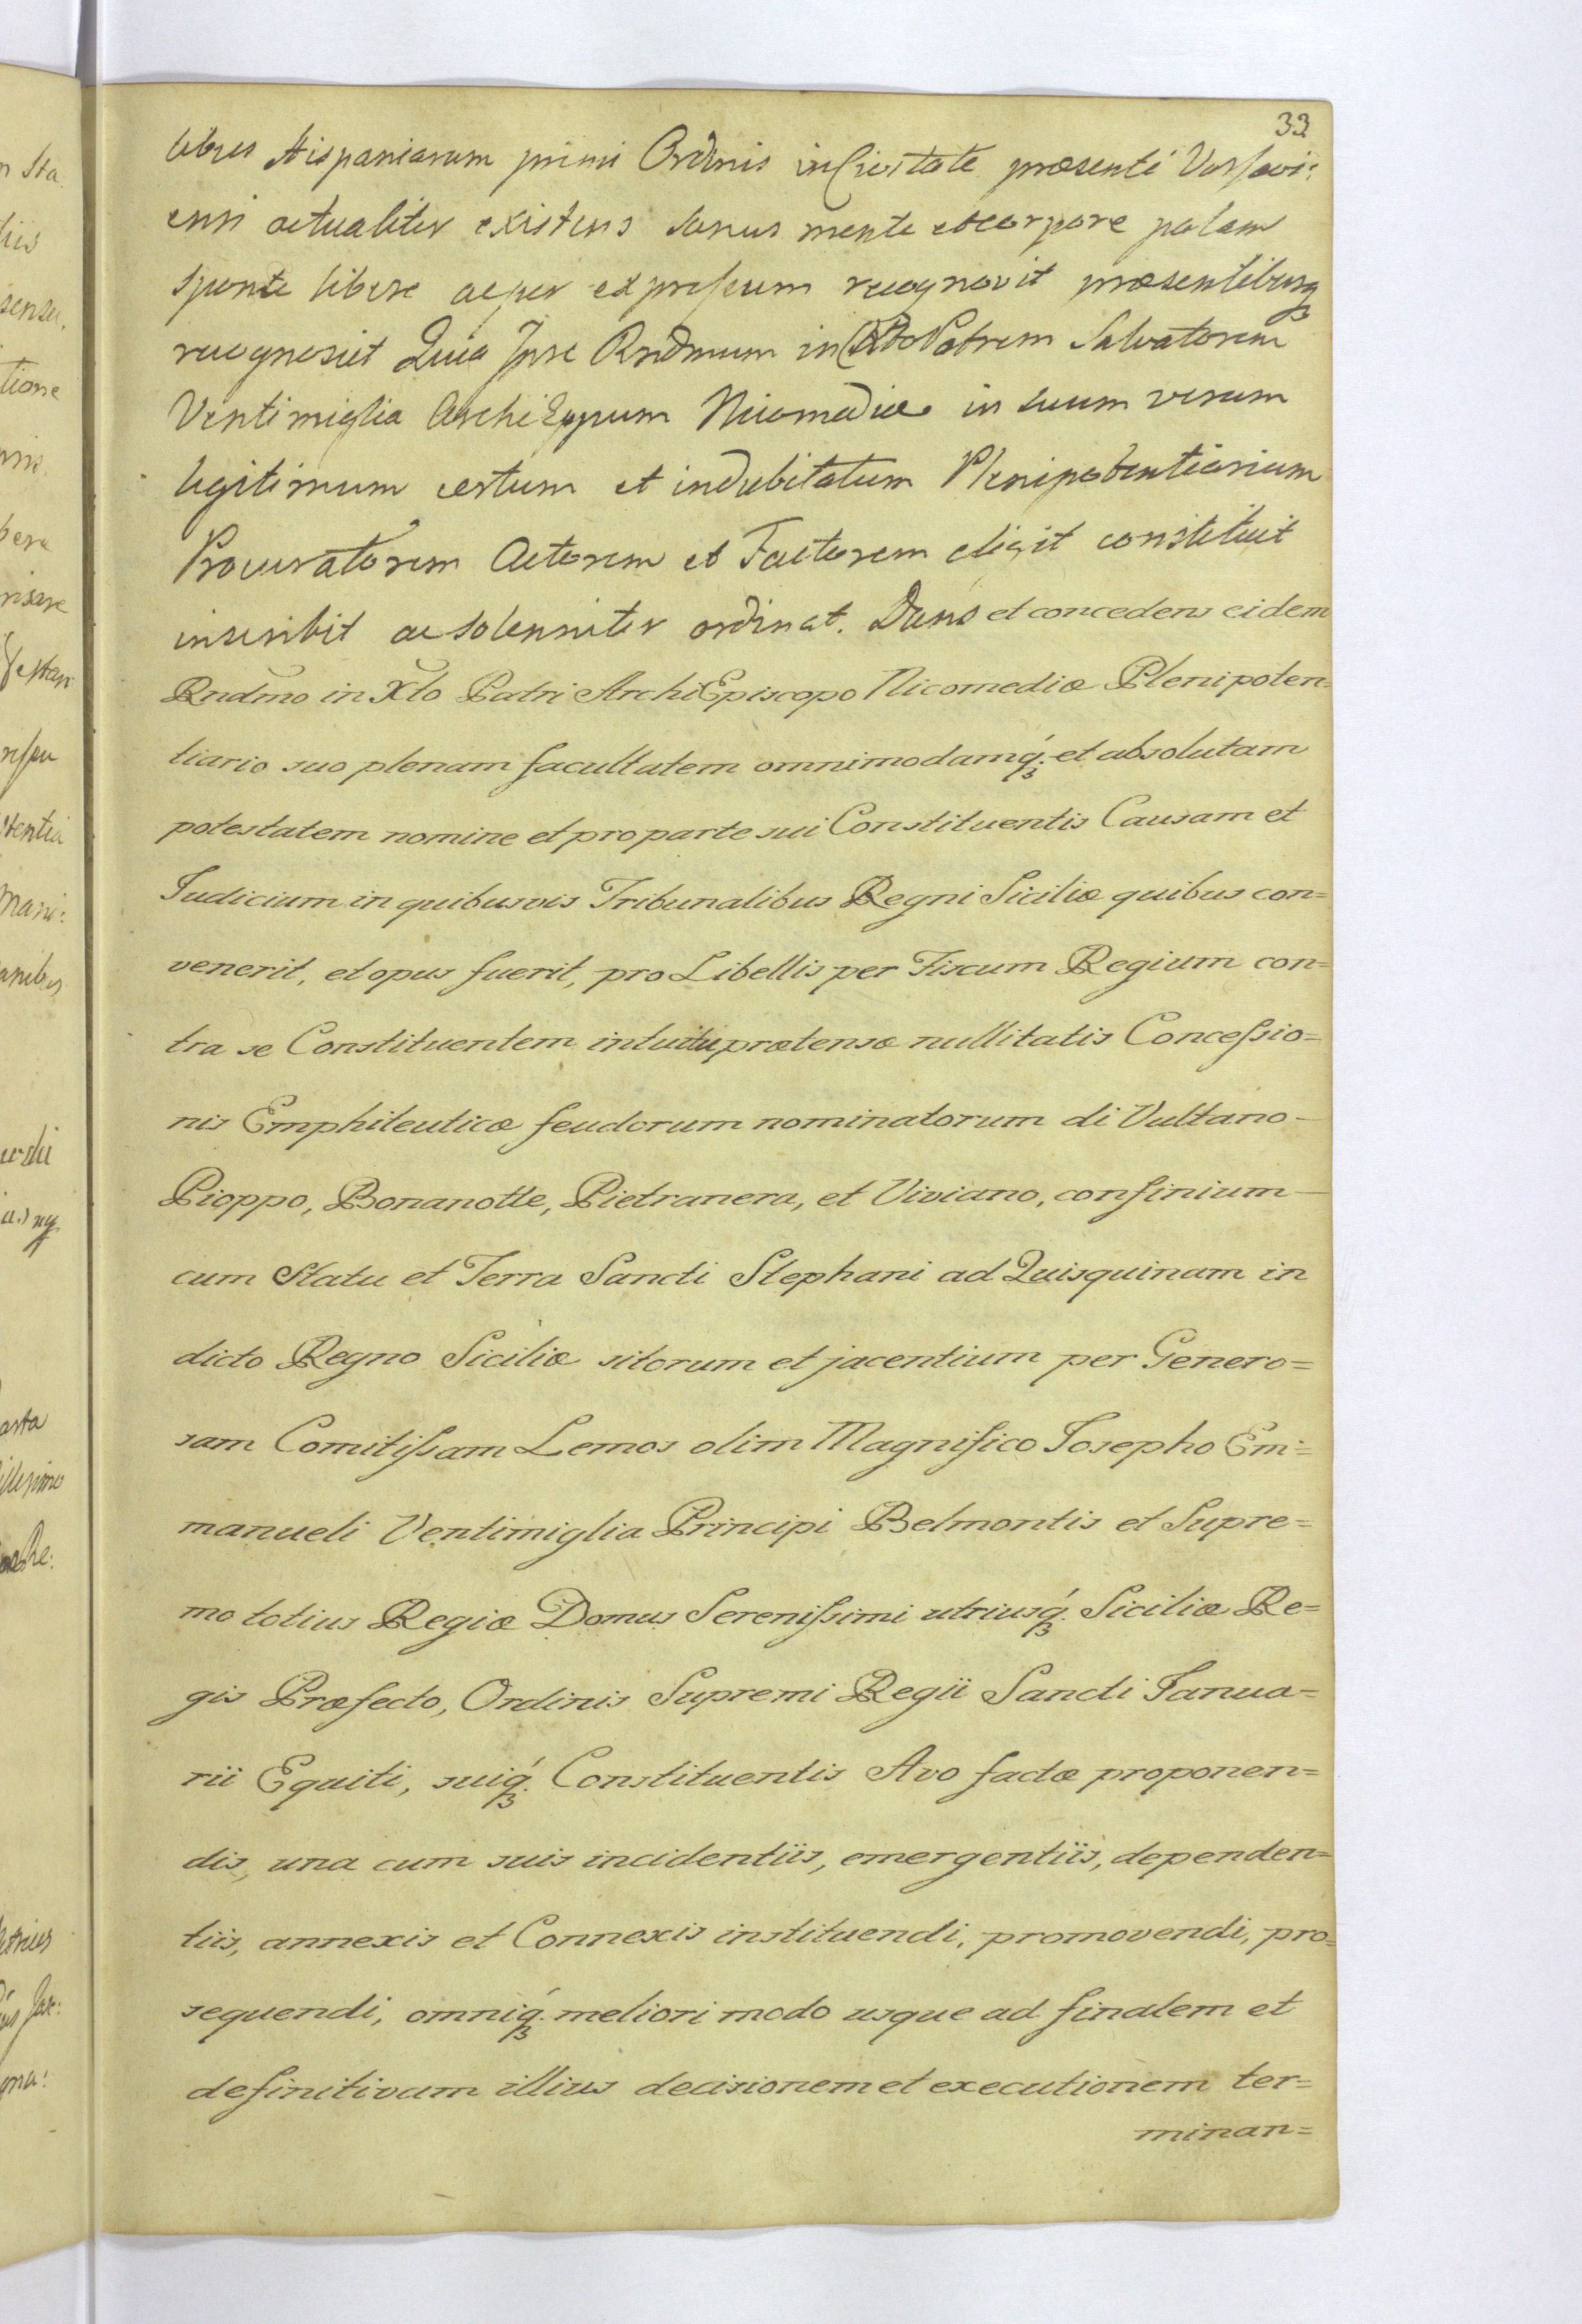 33
libus Hispaniarum primi Ordinis in Civitate præsenti Varsavi:
ensi actualiter existens sanus mente et corpore palam
sponte libere ac per expressum recognovit præsentibusq3
recognoscit Quia Ipse Rndmum in Xto Patrem Salvatorem
Ventimiglia ArchiEppum Nicomediæ in suum verum
legitimum certum et indubitatum Plenipotentiarium
Procuratorem Actorem et Factorem eligit constituit
inscribit ac solenniter ordinat. Dans et concedens eidem
Rndmo in Xto Patri ArchiEpiscopo Nicomediæ Plenipoten=
tiario suo plenam facultatem omnimodamq́3 et absolutam
potestatem nomine et pro parte sui Constituentis Causam et
Judicium in quibusvis Tribunalibus Regni Siciliæ quibus con=
venerit, et opus fuerit, pro Libellis per Fiscum Regium con=
tra se Constituentem intuitu prætensæ nullitatis Concessio=
nis Emphiteuticæ feudorum nominatorum di Vultano-
Pioppo, Bonanotte, Pietranera, et Viviano, confinium-
cum Statu et Terra Sancti Stephani ad Quisquinam in
dicto Regno Siciliæ sitorum et jacentium per Genero=
sam Comitissam Lemos olim Magnifico Josepho Em=
manueli Ventimiglia Principi Belmontis et Supre=
mo totius Regiæ Domus Serenissimi utriusq́3 Siciliæ Re=
gis Præfecto, Ordinis Supremi Regii Sancti Janua=
rii Equiti, suiq́3 Constituentis Avo factæ proponen=
dis, una cum suis incidentiis, emergentiis, dependen=
tiis, annexis et Connexis instituendi, promovendi, pro=
sequendi, omniq́3 meliori modo usque ad finalem et
definitivam illius decisionem et executionem ter=
minan=